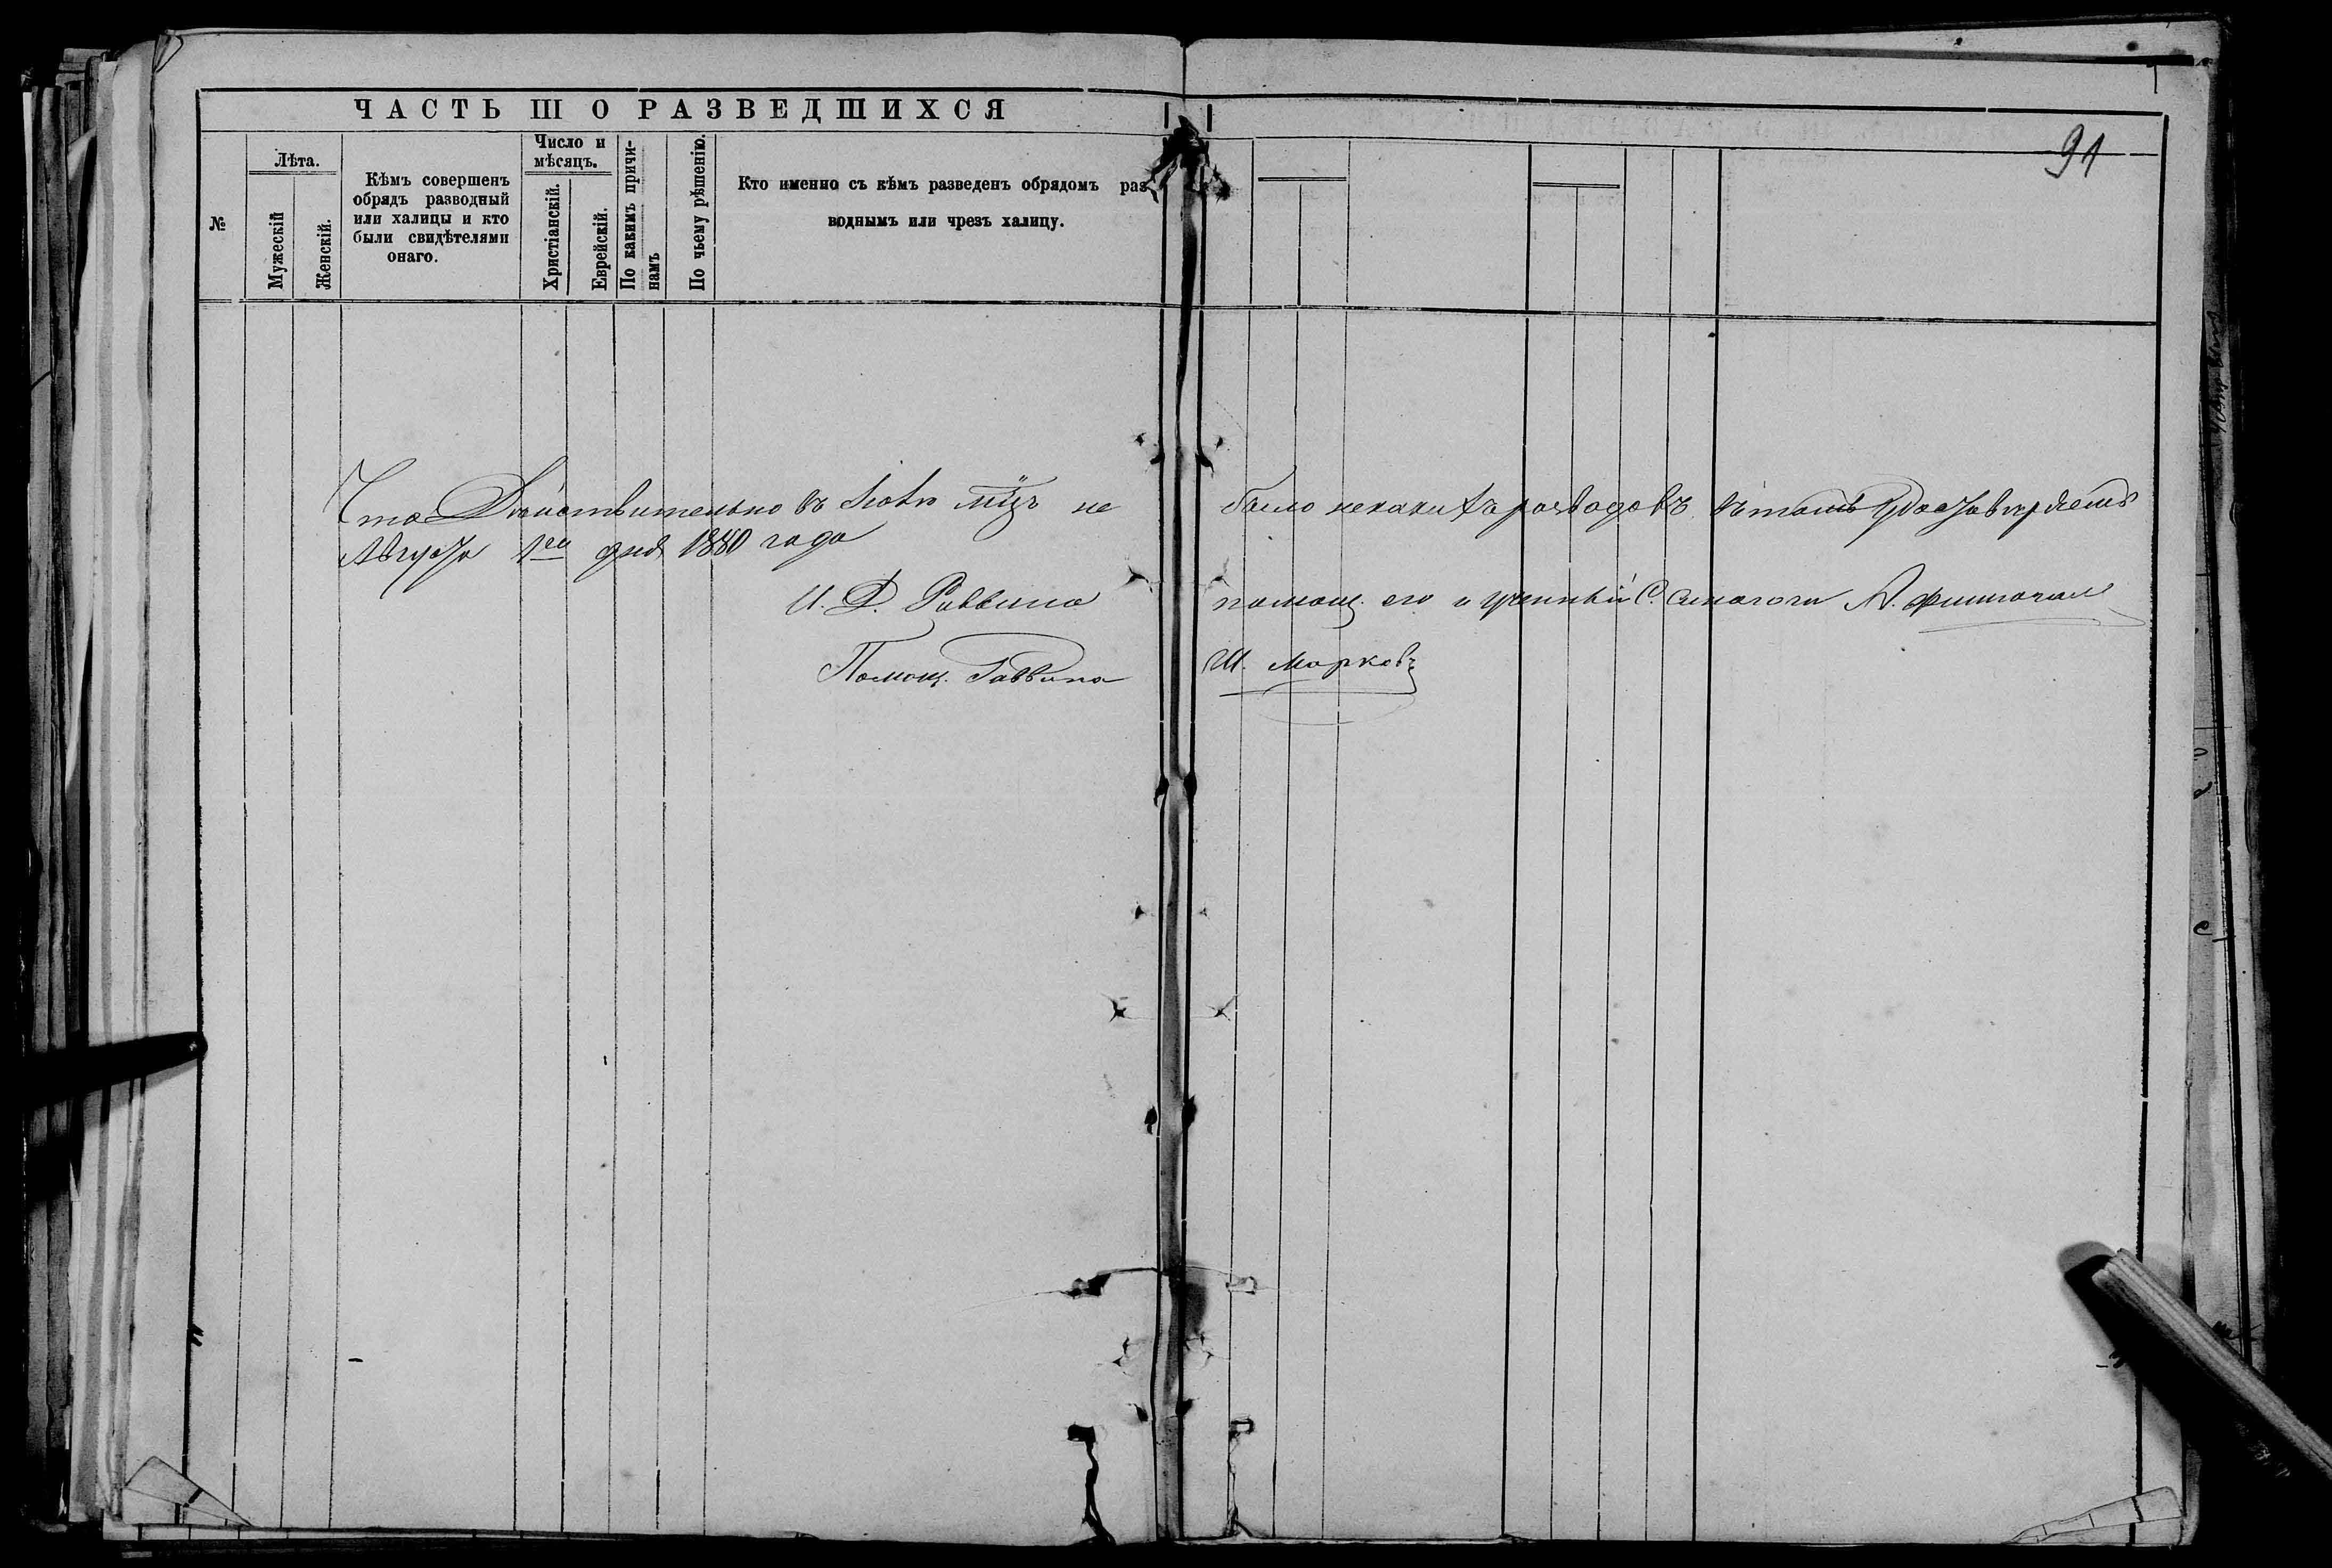 ЧАСТЬ III О РАЗВЕДШИХСЯ
91
№
Лѣта.
Мужескій
Женскій.
Кѣмъ совершенъ
обрядъ разводный
или халицы и кто
были свидѣтелями
онаго.
Число и
мѣсяцъ.
Христіанскій.
Еврейскій.
По какимъ причи-
намъ
По чьему рѣшенію.
Кто именно съ кѣмъ разведенъ обрядомъ раз
воднымъ или чрезъ халицу.
Что Дѣйствительно въ Іюлѣ мцѣ не было некакихъ разводовъ въ томъ
Августа 1го дня 1880 года
И. Д. Раввина помощ. его и ученый С. Синагоги
Помощ. Раввина Ш. Марковъ